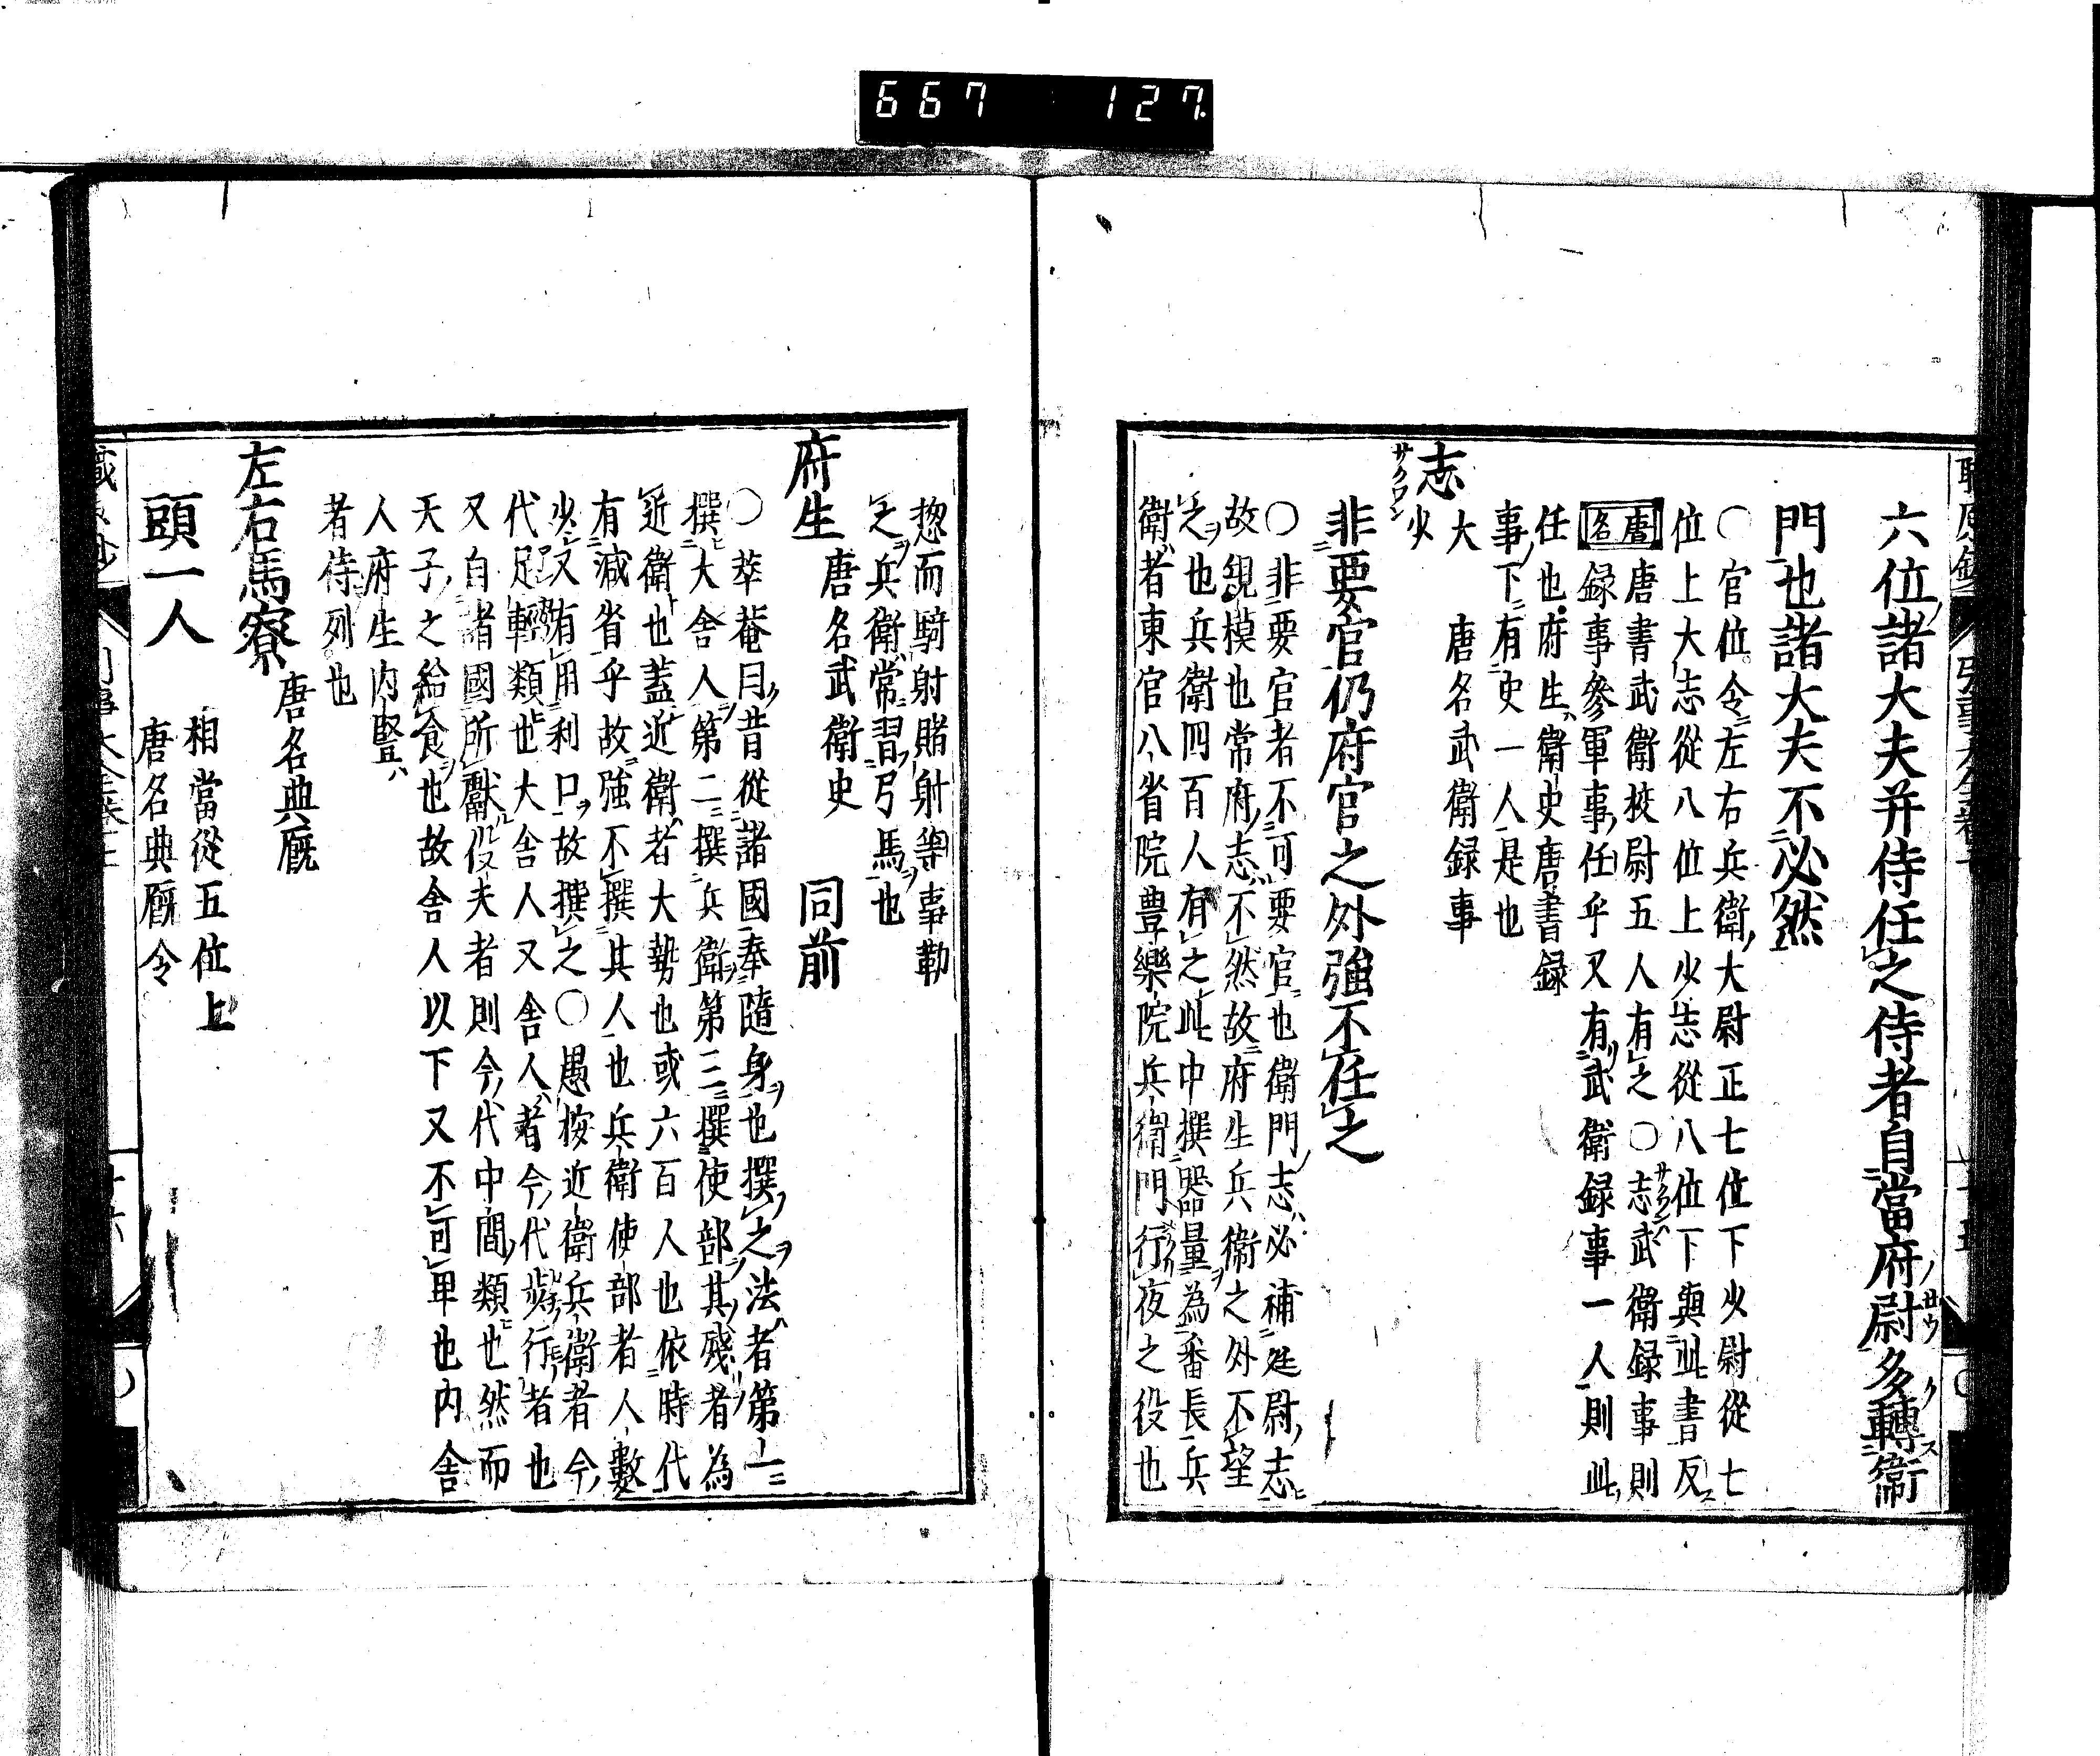 667 127
六位諸大夫并侍任之侍者自當府尉多轉衛
門也諸大夫不必然
○官位令左右兵衛大尉正七位下少尉從七
位上大志從八位上少志從八位下與此書反
唐名唐書武衛校尉五人有之○志武衛録事則
録事參軍事任乎又有武衛録事一人則此
任也府生衛史唐書録
事下有史一人是也
志 大 唐名武衛録事
少
非要官仍府官之外強不任之
○非要官者不可要官也衛門志必補廷尉志
故規模也常府志不然故府生兵衛之外不望
之也兵衛四百人有之此中撰器量為番長兵
衛者東官八省院豊樂院兵衛門行夜之役也
惣而騎射賭射等事勤
之兵衛常習弓馬也
府生 唐名武衛史 同前
○萃菴曰昔從諸國奉隨身也撰之法者第一
撰大舎人第二撰兵衛第三撰使部其殘者為
近衛也蓋近衛者大勢也或六百人也依時代
有減省乎故強不撰其人也兵衛使部者人數
少又有用利口故撰之○愚按近衛兵衛者今
代足輕類也大舎人又舎人者今代歩行者也
又自諸國所獻役夫者則今代中間類也然而
天子之給食也故舎人以下又不可卑也内舎
人府生内豎
者侍列也
左右馬寮 唐名典厩
頭一人 相當從五位上
唐名典厩令